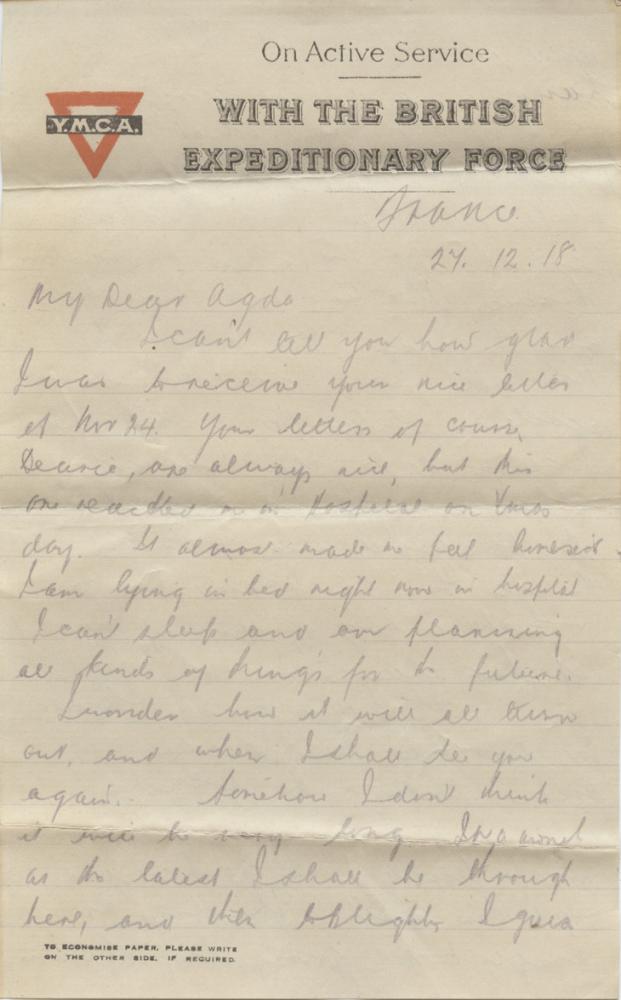 On Active Service
WITH THE BRITISH
EXPEDITIONARY FORCE
Y.M.C.A.
France
27. 12. 18
My Dear Agda
I can't tell you how glad
I was to receive your nice letter
of Nov 24. Your letters of course,
Dearie, are always nice, but this
one reached me in Hospital on Xmas
day. It almost made me feel homesick.
I am lying in bed right now in hospital
I can't sleep and am planning
all kinds of things for the future.
I wonder how it will all turn
out, and when I shall see you
again. Somehow I don't think
it will be very long. In a month
at the latest I shall be through
here, and then to Blighty I guess
TO ECONOMISE PAPER, PLEASE WRITE
ON THE OTHER SIDE, IF REQUIRED.